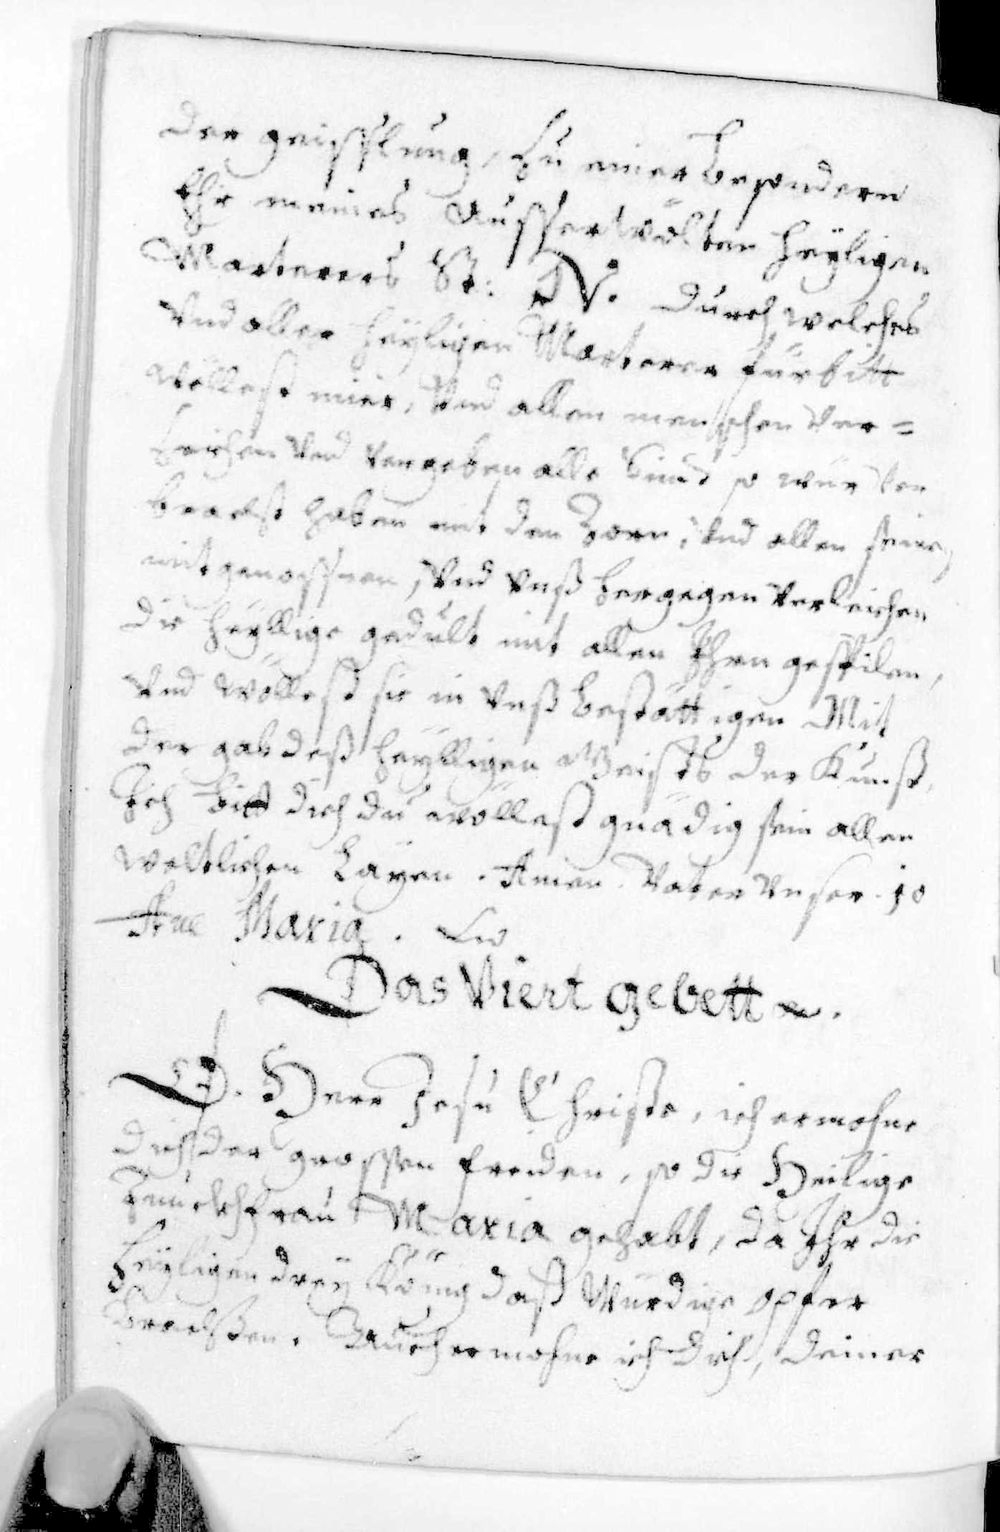 der geisslung, Zu einer besondern
Ehr meines Ausserwölten heÿligen
Marterers St: N. durch welches
Vnd aller heÿligen Marterer fürbitt
wöllest mier, Vnd allen menschen Ver=
Zeichen Vnd Vergeben alle Sünd so wür Ver
bracht haben mit dem Zorn, Vnd allen seinen
mitgenossnen, Vnd Vnß hergegen Verleichen
die heÿllige gedult mit allen Ihren gespilen,
Vnd wöllest sie in Vnß bestättigen Mit
der gab deß heÿlligen Geists der Kunst,
Ich bitt dich du wöllest gnädig sein allen
weltlichen Layen. Amen. Vater Vnser. 10
Aue Maria.
Das Viert gebett
O. Herr Jesu Christe, ich ermohne
dich der grossen freiden, so die Heilige
Junckhfrau Maria gehabt, da Ihr die
heÿligen dreÿ König daß Würdige opfer
brachten. Auch ermohne ich dich, deiner